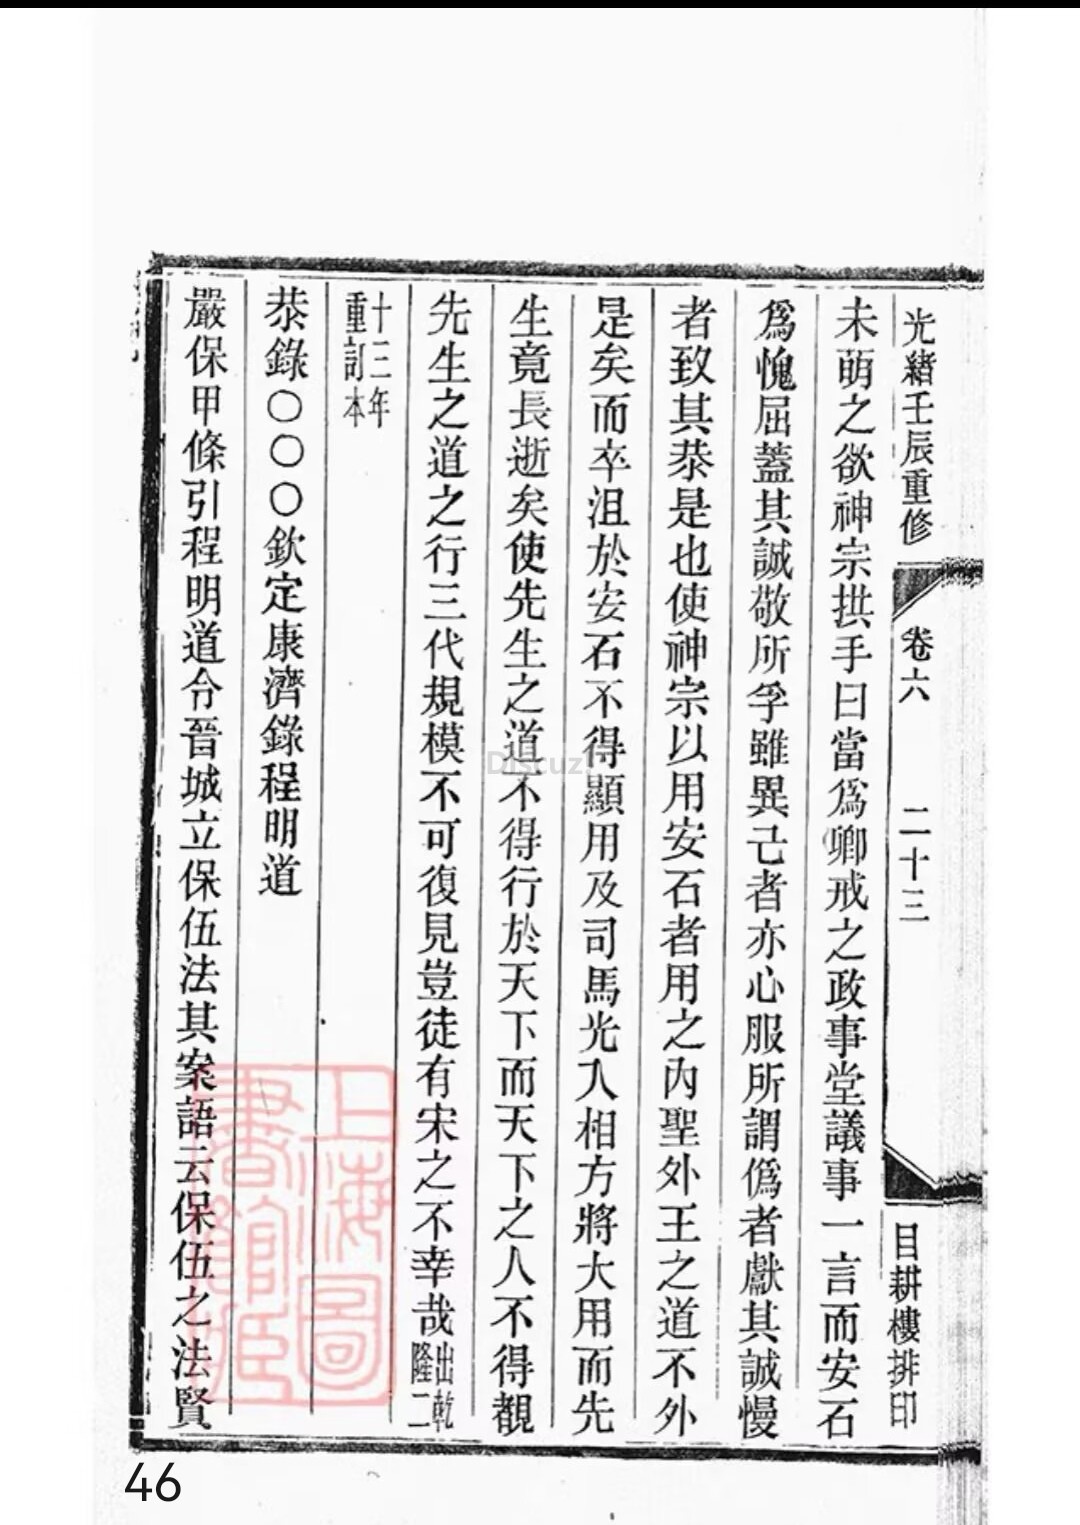 光緒壬辰重修 卷六 二十三 目耕樓排印
未萌之欲神宗拱手曰當爲卿戒之政事堂議事一言而安石
爲愧屈蓋其誠敬所孚雖異己者亦心服所謂僞者獻其誠慢
者致其恭是也使神宗以用安石者用之內聖外王之道不外
是矣而卒沮於安石不得顯用及司馬光入相方將大用而先
生竟長逝矣使先生之道不得行於天下而天下之人不得覩
先生之道之行三代規模不可復見豈徒有宋之不幸哉出乾隆二
十三年重訂本
恭錄〇〇〇欽定康濟錄程明道
嚴保甲條引程明道令晉城立保伍法其案語云保伍之法賢
上海圖書館藏
Discuz!
46